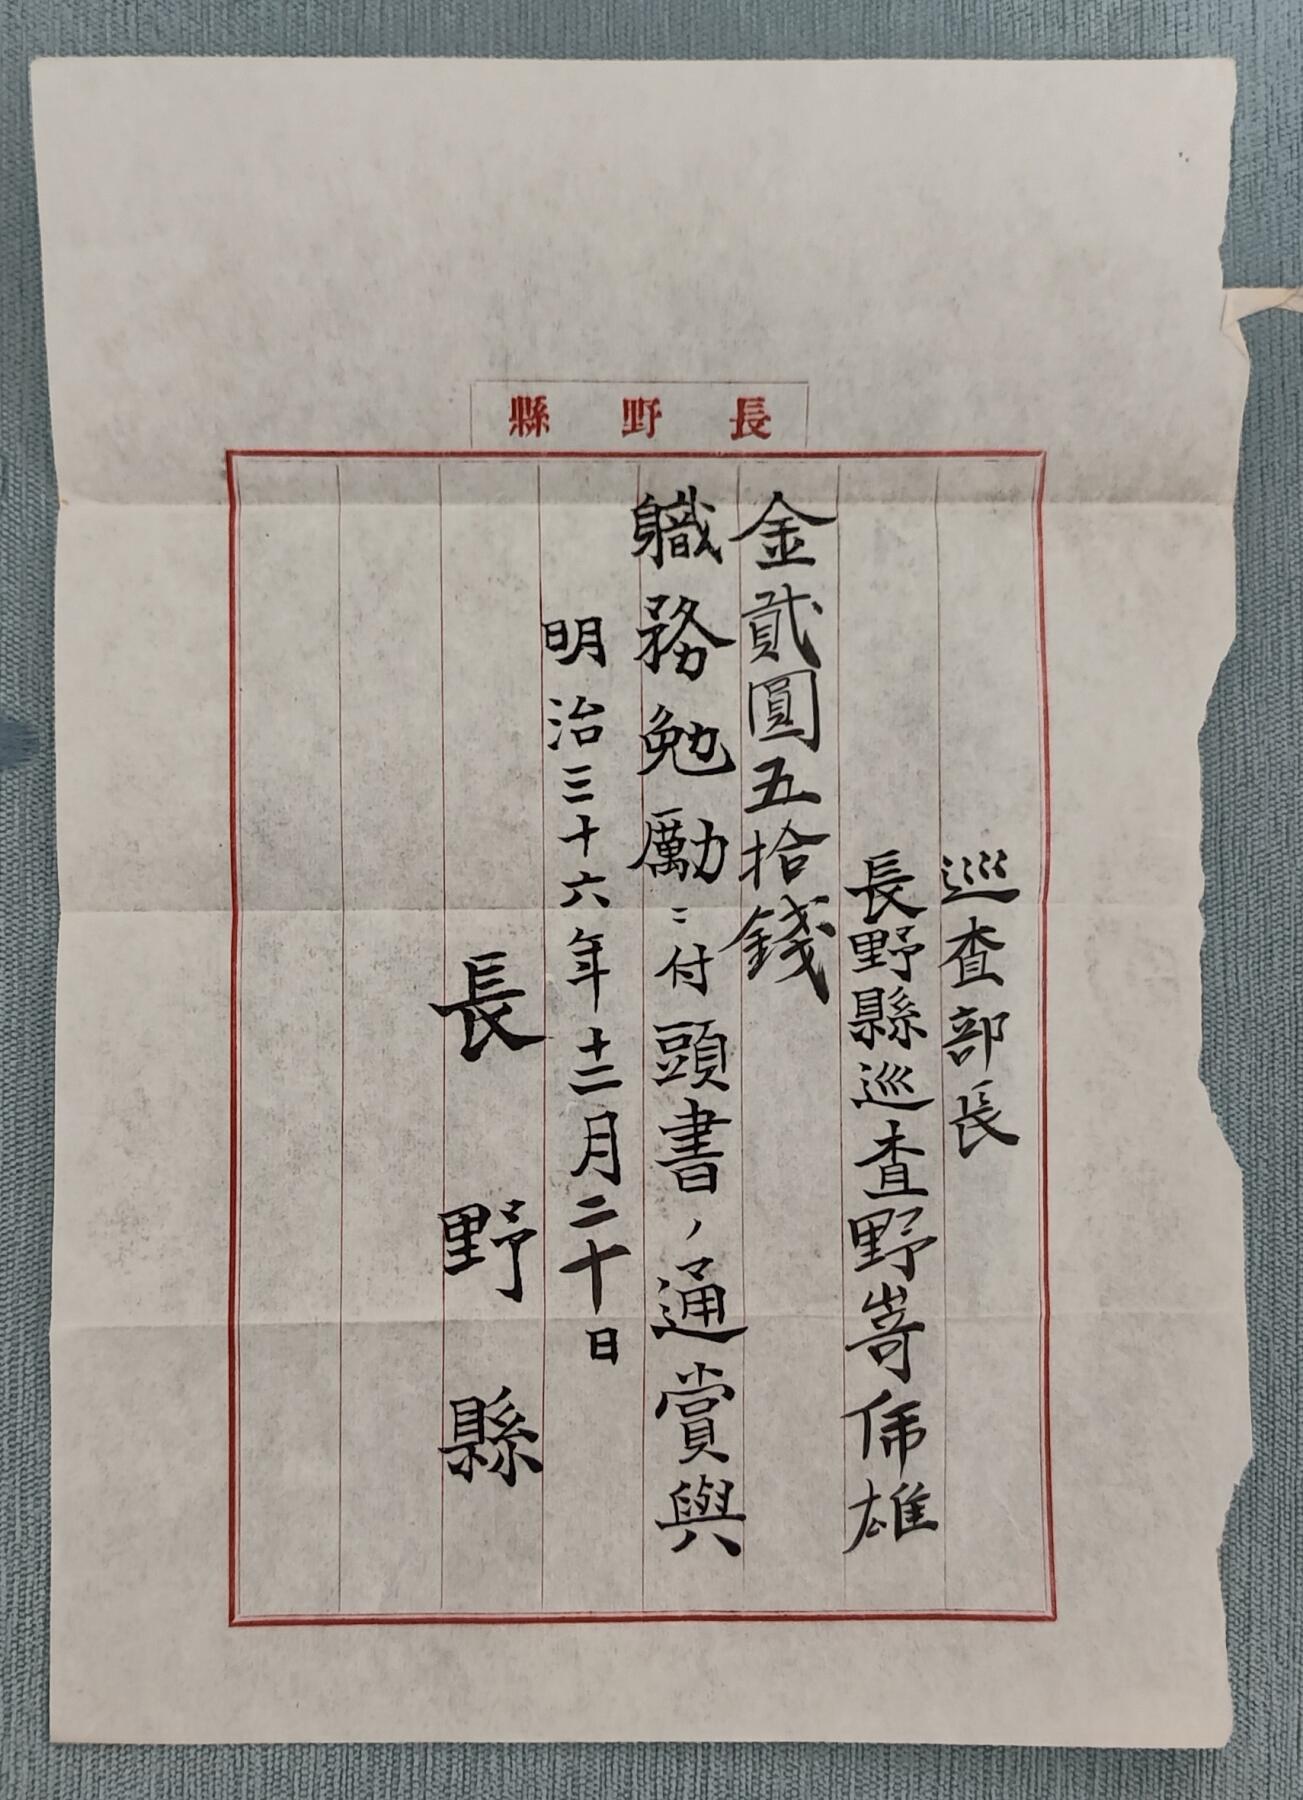 長野縣
巡査部長
長野縣巡査野嵜俤雄
金貳圓五拾錢
職務勉勵ニ付頭書ノ通賞與
明治三十六年十二月二十日
長野縣